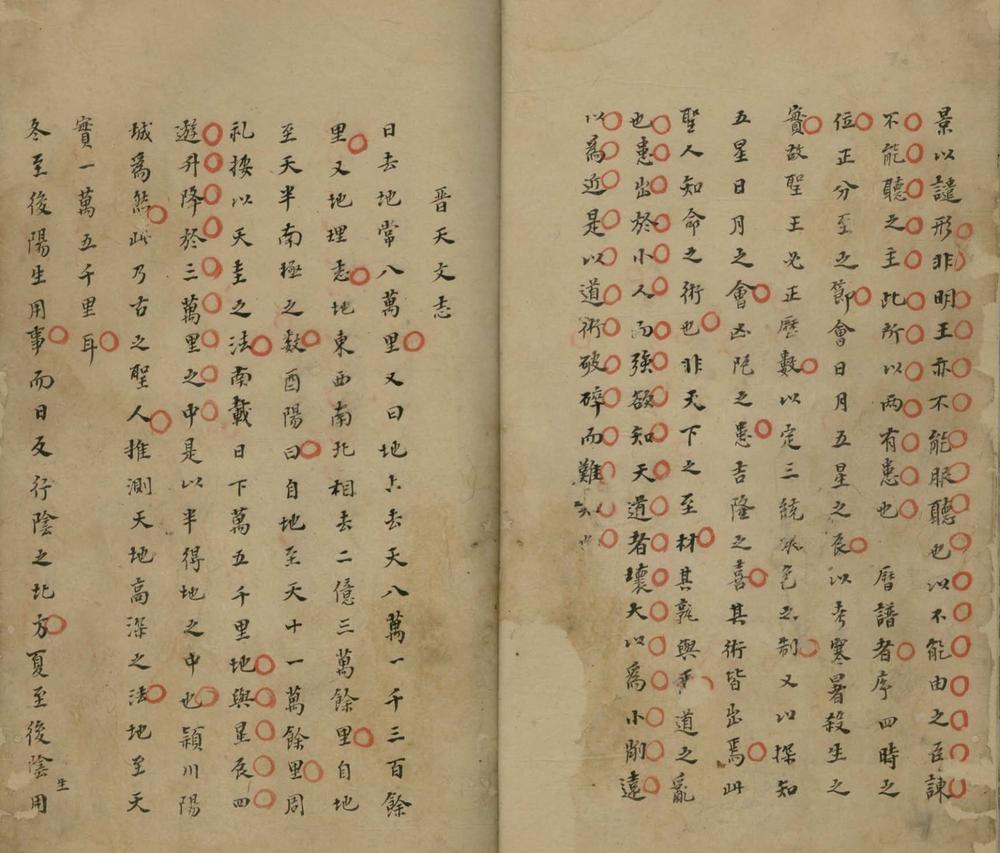 景以譴形非明王亦不能服聽也以不能由之臣諫
不能聽之主此所以兩有患也　曆譜者序四時之
位正分至之節會日月五星之辰以考寒暑殺生之
實故聖王必正歷數以定三統服色之制又以探知
五星日月之會凶阨之患吉隆之喜其術皆出焉此
聖人知命之術也非天下之至材其孰與乎道之亂
也患出於小人而強欲知天道者壞大以爲小削遠
以爲近是以道術破碎而難知也
晋天文志
日去地常八萬里又曰地上去天八萬一千三百餘
里又地理志地東西南北相去二億三萬餘里自地
至天半南極之数酉陽曰自地至天十一萬餘里周
礼按以天圭之法南載日下萬五千里地與星辰四
遊升降於三萬里之中是以半得地之中也穎川陽
城爲然此乃古之聖人推測天地高深之法地至天
實一萬五千里耳
冬至後陽生用事而日反行陰之北方夏至後陰生用